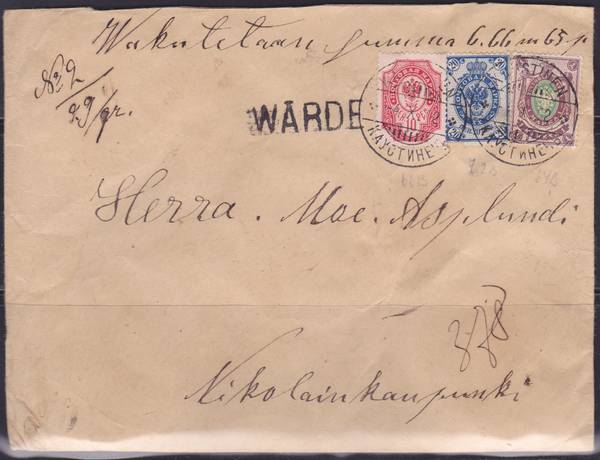 Wakutetaan summa 666 m 65 p
No 2
29 gr.
WÄRDE
10
20 20
20 20
КАУСТИНЕНЪ
КАУСТИНЕНЪ
Herra. Moe. Asplundi
Nikolainkaupunki